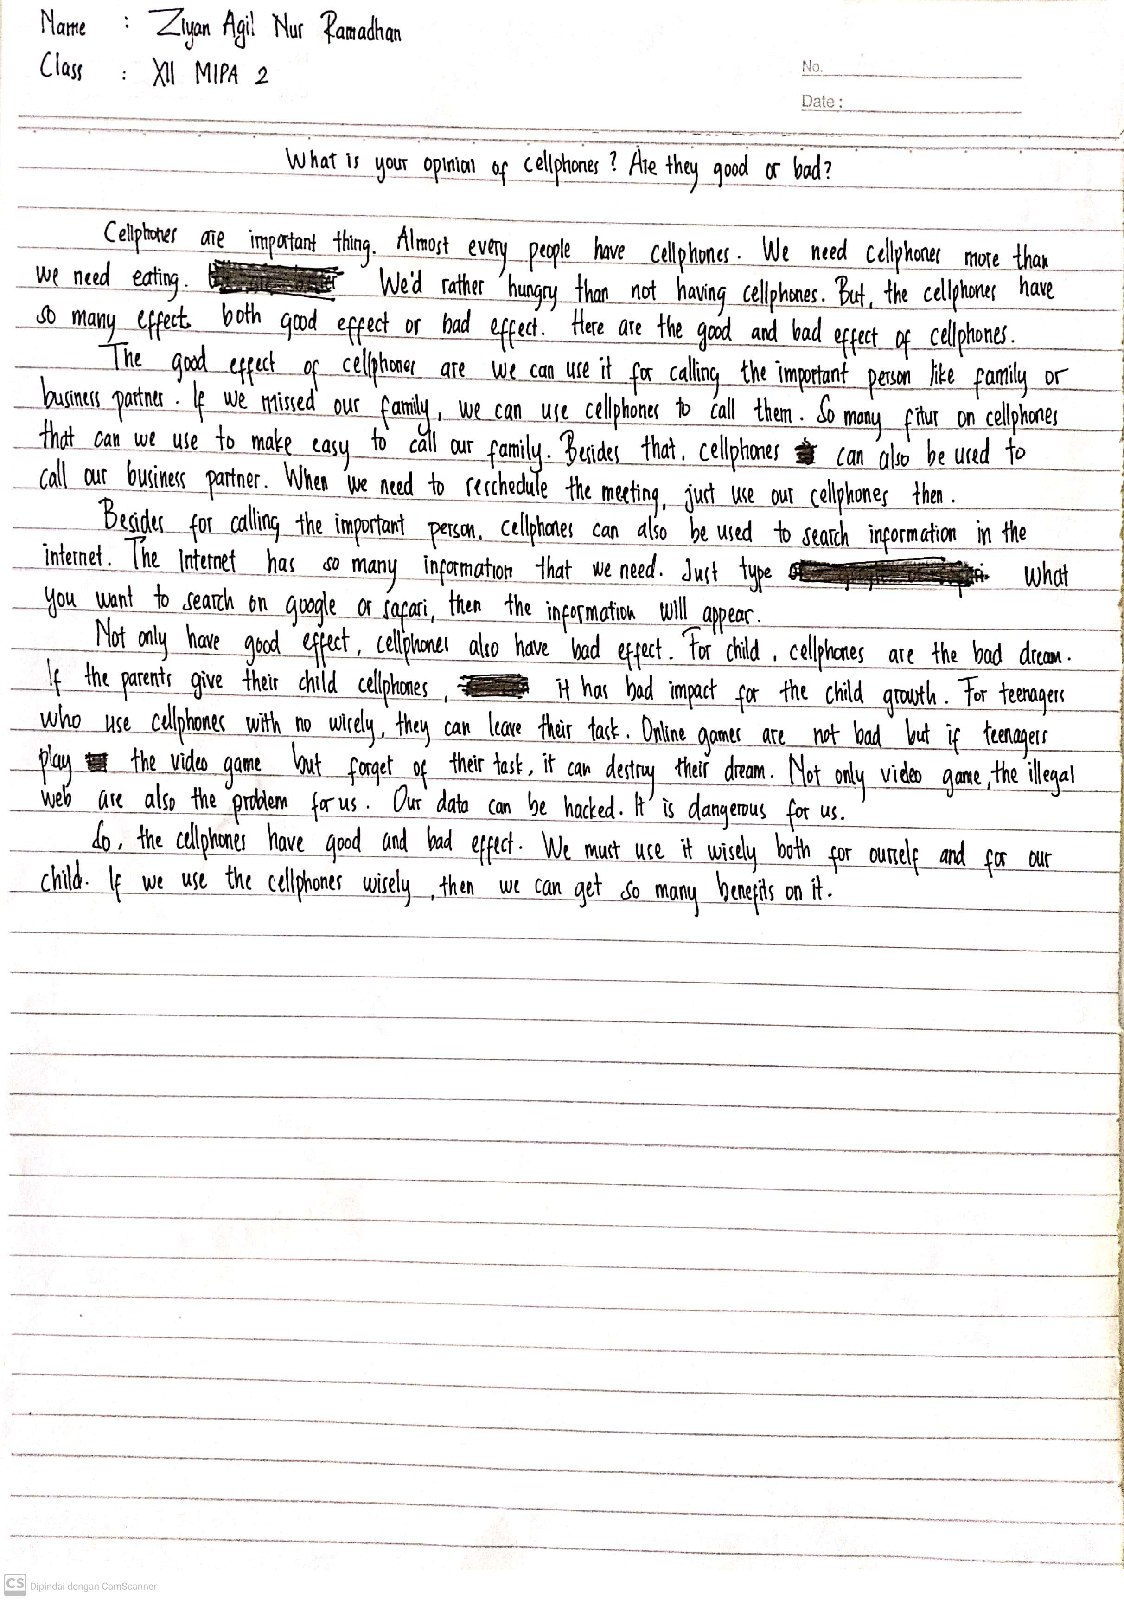 Name : Ziyan Agil Nur Ramadhan
Class : XII MIPA 2
No.
Date :
What is your opinion of cellphones ? Are they good or bad?
Cellphones are important thing. Almost every people have cellphones. We need cellphones more than
we need eating. We'd rather hungry than not having cellphones. But, the cellphones have
so many effect. both good effect or bad effect. Here are the good and bad effect of cellphones.
The good effect of cellphones are we can use it for calling the important person like family or
business partner. If we missed our family, we can use cellphones to call them. So many fitur on cellphones
that can we use to make easy to call our family. Besides that, cellphones can also be used to
call our business partner. When we need to reschedule the meeting, just use our cellphones then.
Besides for calling the important person, cellphones can also be used to search information in the
internet. The Internet has so many information that we need. Just type what
you want to search on google or safari, then the information will appear.
Not only have good effect, cellphones also have bad effect. For child, cellphones are the bad dream.
If the parents give their child cellphones, it has bad impact for the child growth. For teenagers
who use cellphones with no wisely, they can leave their task. Online games are not bad but if teenagers
play the video game but forget of their task, it can destroy their dream. Not only video game, the illegal
web are also the problem for us. Our data can be hacked. It is dangerous for us.
So, the cellphones have good and bad effect. We must use it wisely both for ourself and for our
child. If we use the cellphones wisely, then we can get so many benefits on it.
CS Dipindai dengan CamScanner